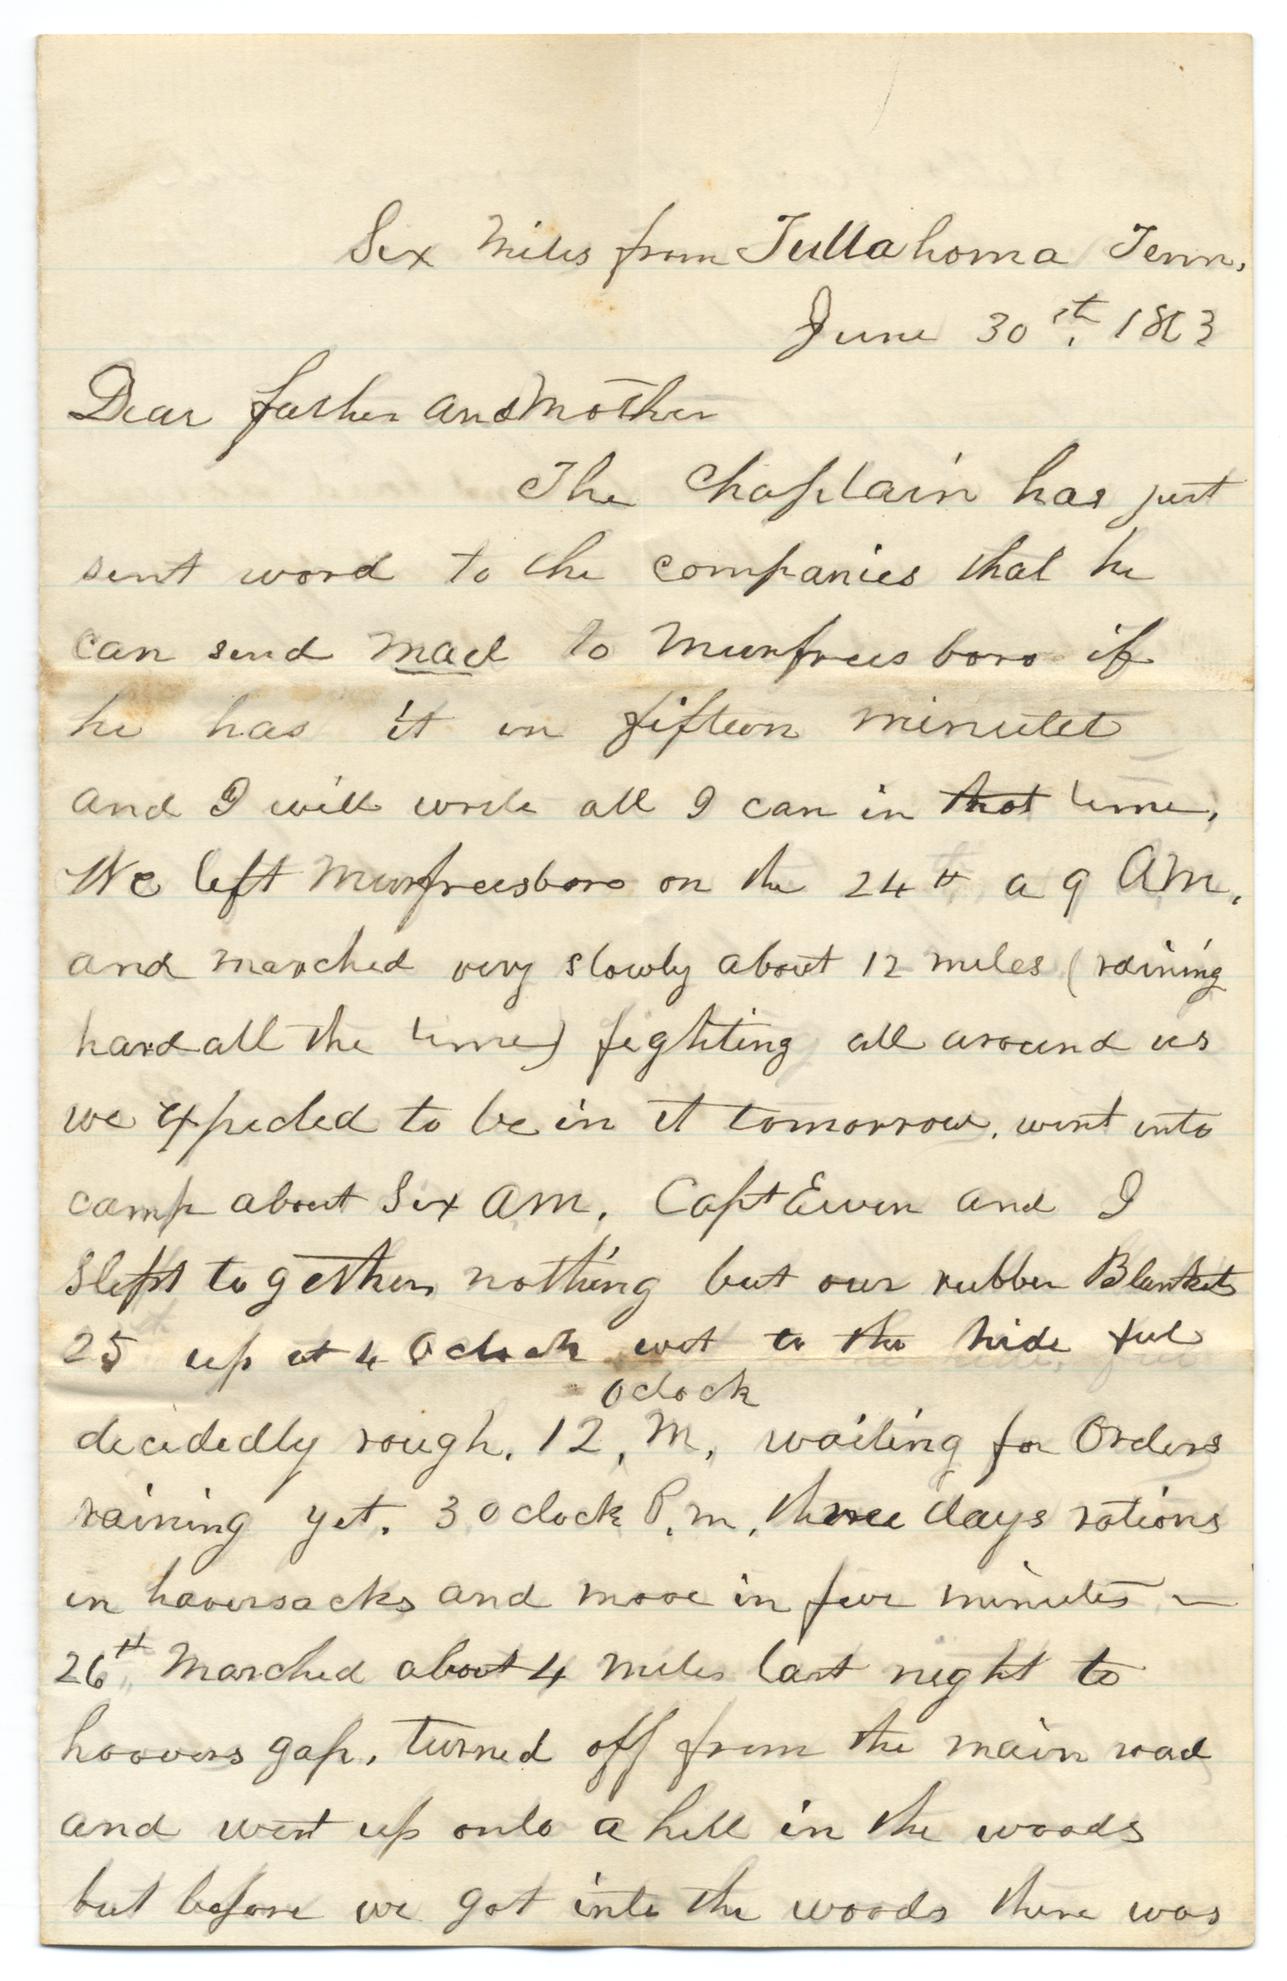 Six Miles from Tullahoma Tenn.
June 30th. 1863
Dear father and Mother
The Chaplain has just
sent word to the companies that he
can send mail to Murfreesboro if
he has it in fifteen minutes
and I will write all I can in that time,
We left Murfreesboro on the 24th a 9 AM.
and marched very slowly about 12 miles (raining
hard all the time) fighting all around us
we expected to be in it tomorrow. went into
camp about Six AM. Capt Ewen and I
Slept together nothing but our rubber Blankets
25 up at 4 Oclock wet to the hide feel
Oclock
decidedly rough. 12, M, waiting for Orders
raining yet. 3 Oclock P.m, three days rations
in haversacks and move in five minutes —
26th Marched about 4 Miles last night to
hoovers gap, turned off from the main road
and went up onto a hill in the woods
but before we got into the woods there was